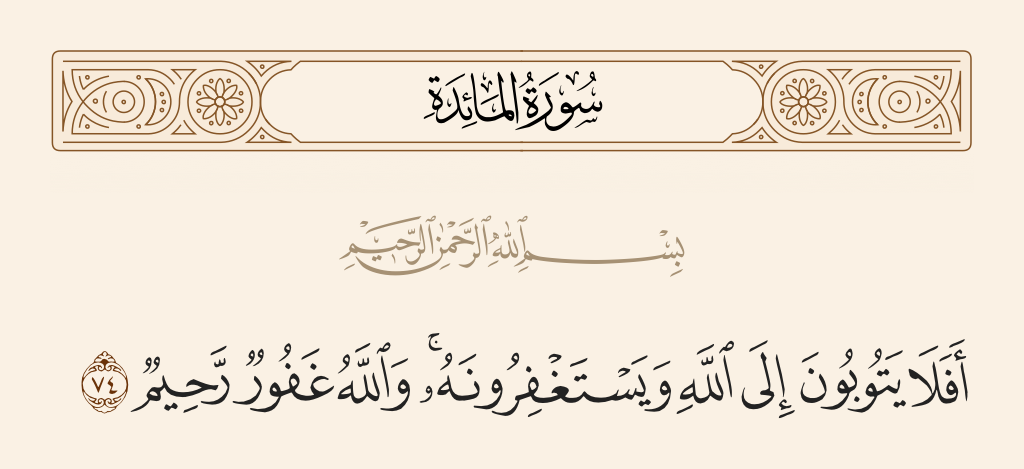 سُورَةُ المَائِدَةِ
بِسْمِ ٱللَّهِ ٱلرَّحْمَٰنِ ٱلرَّحِيمِ
أَفَلَا يَتُوبُونَ إِلَى ٱللَّهِ وَيَسْتَغْفِرُونَهُۥ ۚ وَٱللَّهُ غَفُورٌ رَّحِيمٌ ٧٤